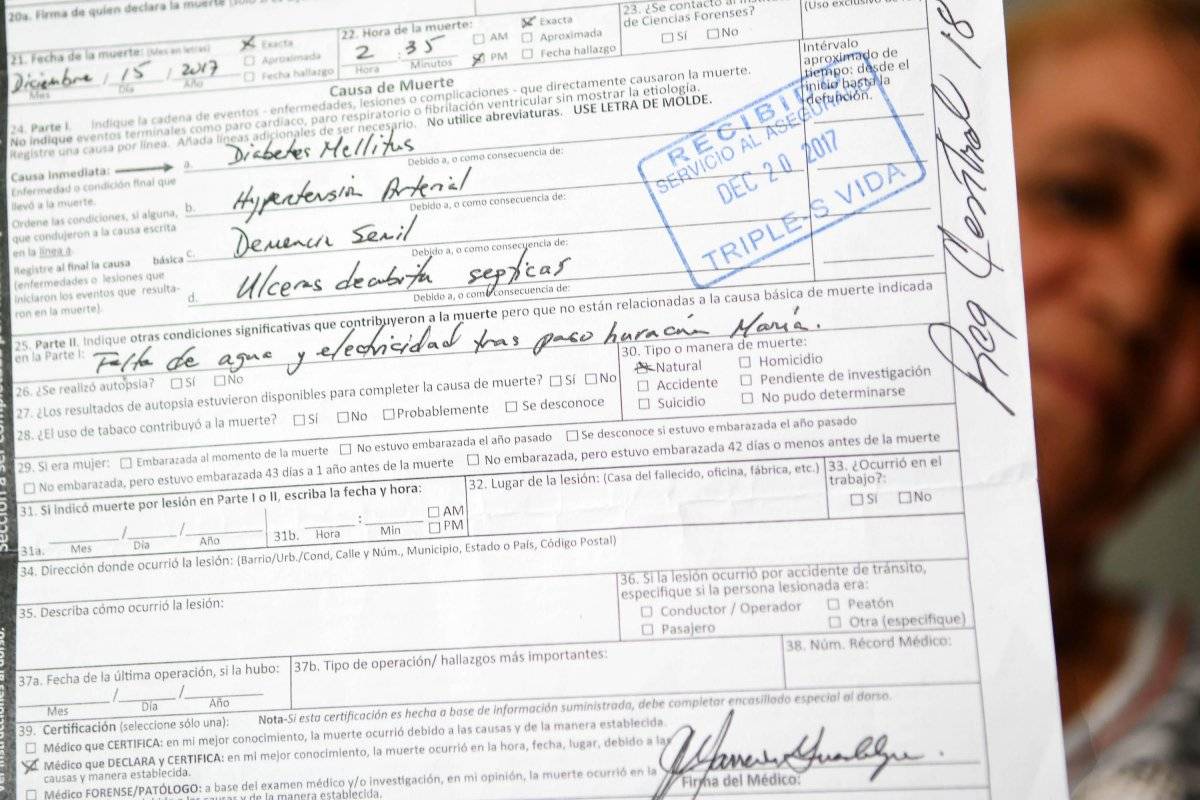 20a. Firma de quien declara la muerte
21. Fecha de la muerte: (Mes en letras)
Exacta
Aproximada
Fecha hallazgo
Diciembre / 15 / 2017
Mes Día Año
22. Hora de la muerte:
AM
PM
2 : 35
Hora Minutos
Exacta
Aproximada
Fecha hallazgo
23. ¿Se contactó al
de Ciencias Forenses?
Sí No
(Uso exclusivo de
Causa de Muerte
24. Parte I. Indique la cadena de eventos - enfermedades, lesiones o complicaciones - que directamente causaron la muerte.
No indique eventos terminales como paro cardíaco, paro respiratorio o fibrilación ventricular sin mostrar la etiología.
Registre una causa por línea. Añada líneas adicionales de ser necesario. No utilice abreviaturas. USE LETRA DE MOLDE.
Intérvalo
aproximado de
tiempo: desde el
inicio hasta la
defunción.
Causa inmediata:
Enfermedad o condición final que
llevó a la muerte.
a. Diabetes Mellitus
Debido a, o como consecuencia de:
Ordene las condiciones, si alguna,
que condujeron a la causa escrita
en la línea a.
b. Hypertensión Arterial
Debido a, o como consecuencia de:
Registre al final la causa básica
(enfermedades o lesiones que
iniciaron los eventos que resulta-
ron en la muerte).
c. Demencia Senil
Debido a, o como consecuencia de:
d. Ulceras decubita septicas
Debido a, o como consecuencia de:
RECIBIDO
SERVICIO AL ASEGURADO
DEC 20 2017
TRIPLE-S VIDA
Reg Central 18
25. Parte II. Indique otras condiciones significativas que contribuyeron a la muerte pero que no están relacionadas a la causa básica de muerte indicada
en la Parte I: Falta de agua y electricidad tras paso huracán María.
26. ¿Se realizó autopsia? Sí No
27. ¿Los resultados de autopsia estuvieron disponibles para completar la causa de muerte? Sí No
28. ¿El uso de tabaco contribuyó a la muerte? Sí No Probablemente Se desconoce
30. Tipo o manera de muerte:
Natural
Accidente
Suicidio
Homicidio
Pendiente de investigación
No pudo determinarse
29. Si era mujer: Embarazada al momento de la muerte No estuvo embarazada el año pasado Se desconoce si estuvo embarazada el año pasado
No embarazada, pero estuvo embarazada 43 días a 1 año antes de la muerte No embarazada, pero estuvo embarazada 42 días o menos antes de la muerte
31. Si indicó muerte por lesión en Parte I o II, escriba la fecha y hora:
31a. Mes / Día / Año
31b. Hora : Min
AM
PM
32. Lugar de la lesión: (Casa del fallecido, oficina, fábrica, etc.)
33. ¿Ocurrió en el
trabajo?:
Sí No
34. Dirección donde ocurrió la lesión: (Barrio/Urb./Cond, Calle y Núm., Municipio, Estado o País, Código Postal)
35. Describa cómo ocurrió la lesión:
36. Si la lesión ocurrió por accidente de tránsito,
especifique si la persona lesionada era:
Conductor / Operador
Pasajero
Peatón
Otra (especifique)
37a. Fecha de la última operación, si la hubo:
Mes / Día / Año
37b. Tipo de operación/ hallazgos más importantes:
38. Núm. Récord Médico:
39. Certificación (seleccione sólo una): Nota-Si esta certificación es hecha a base de información suministrada, debe completar encasillado especial al dorso.
Médico que CERTIFICA: en mi mejor conocimiento, la muerte ocurrió debido a las causas y de la manera establecida.
Médico que DECLARA y CERTIFICA: en mi mejor conocimiento, la muerte ocurrió en la hora, fecha, lugar, debido a las
causas y manera establecida.
Médico FORENSE/PATÓLOGO: a base del examen médico y/o investigación, en mi opinión, la muerte ocurrió en la
Firma del Médico: